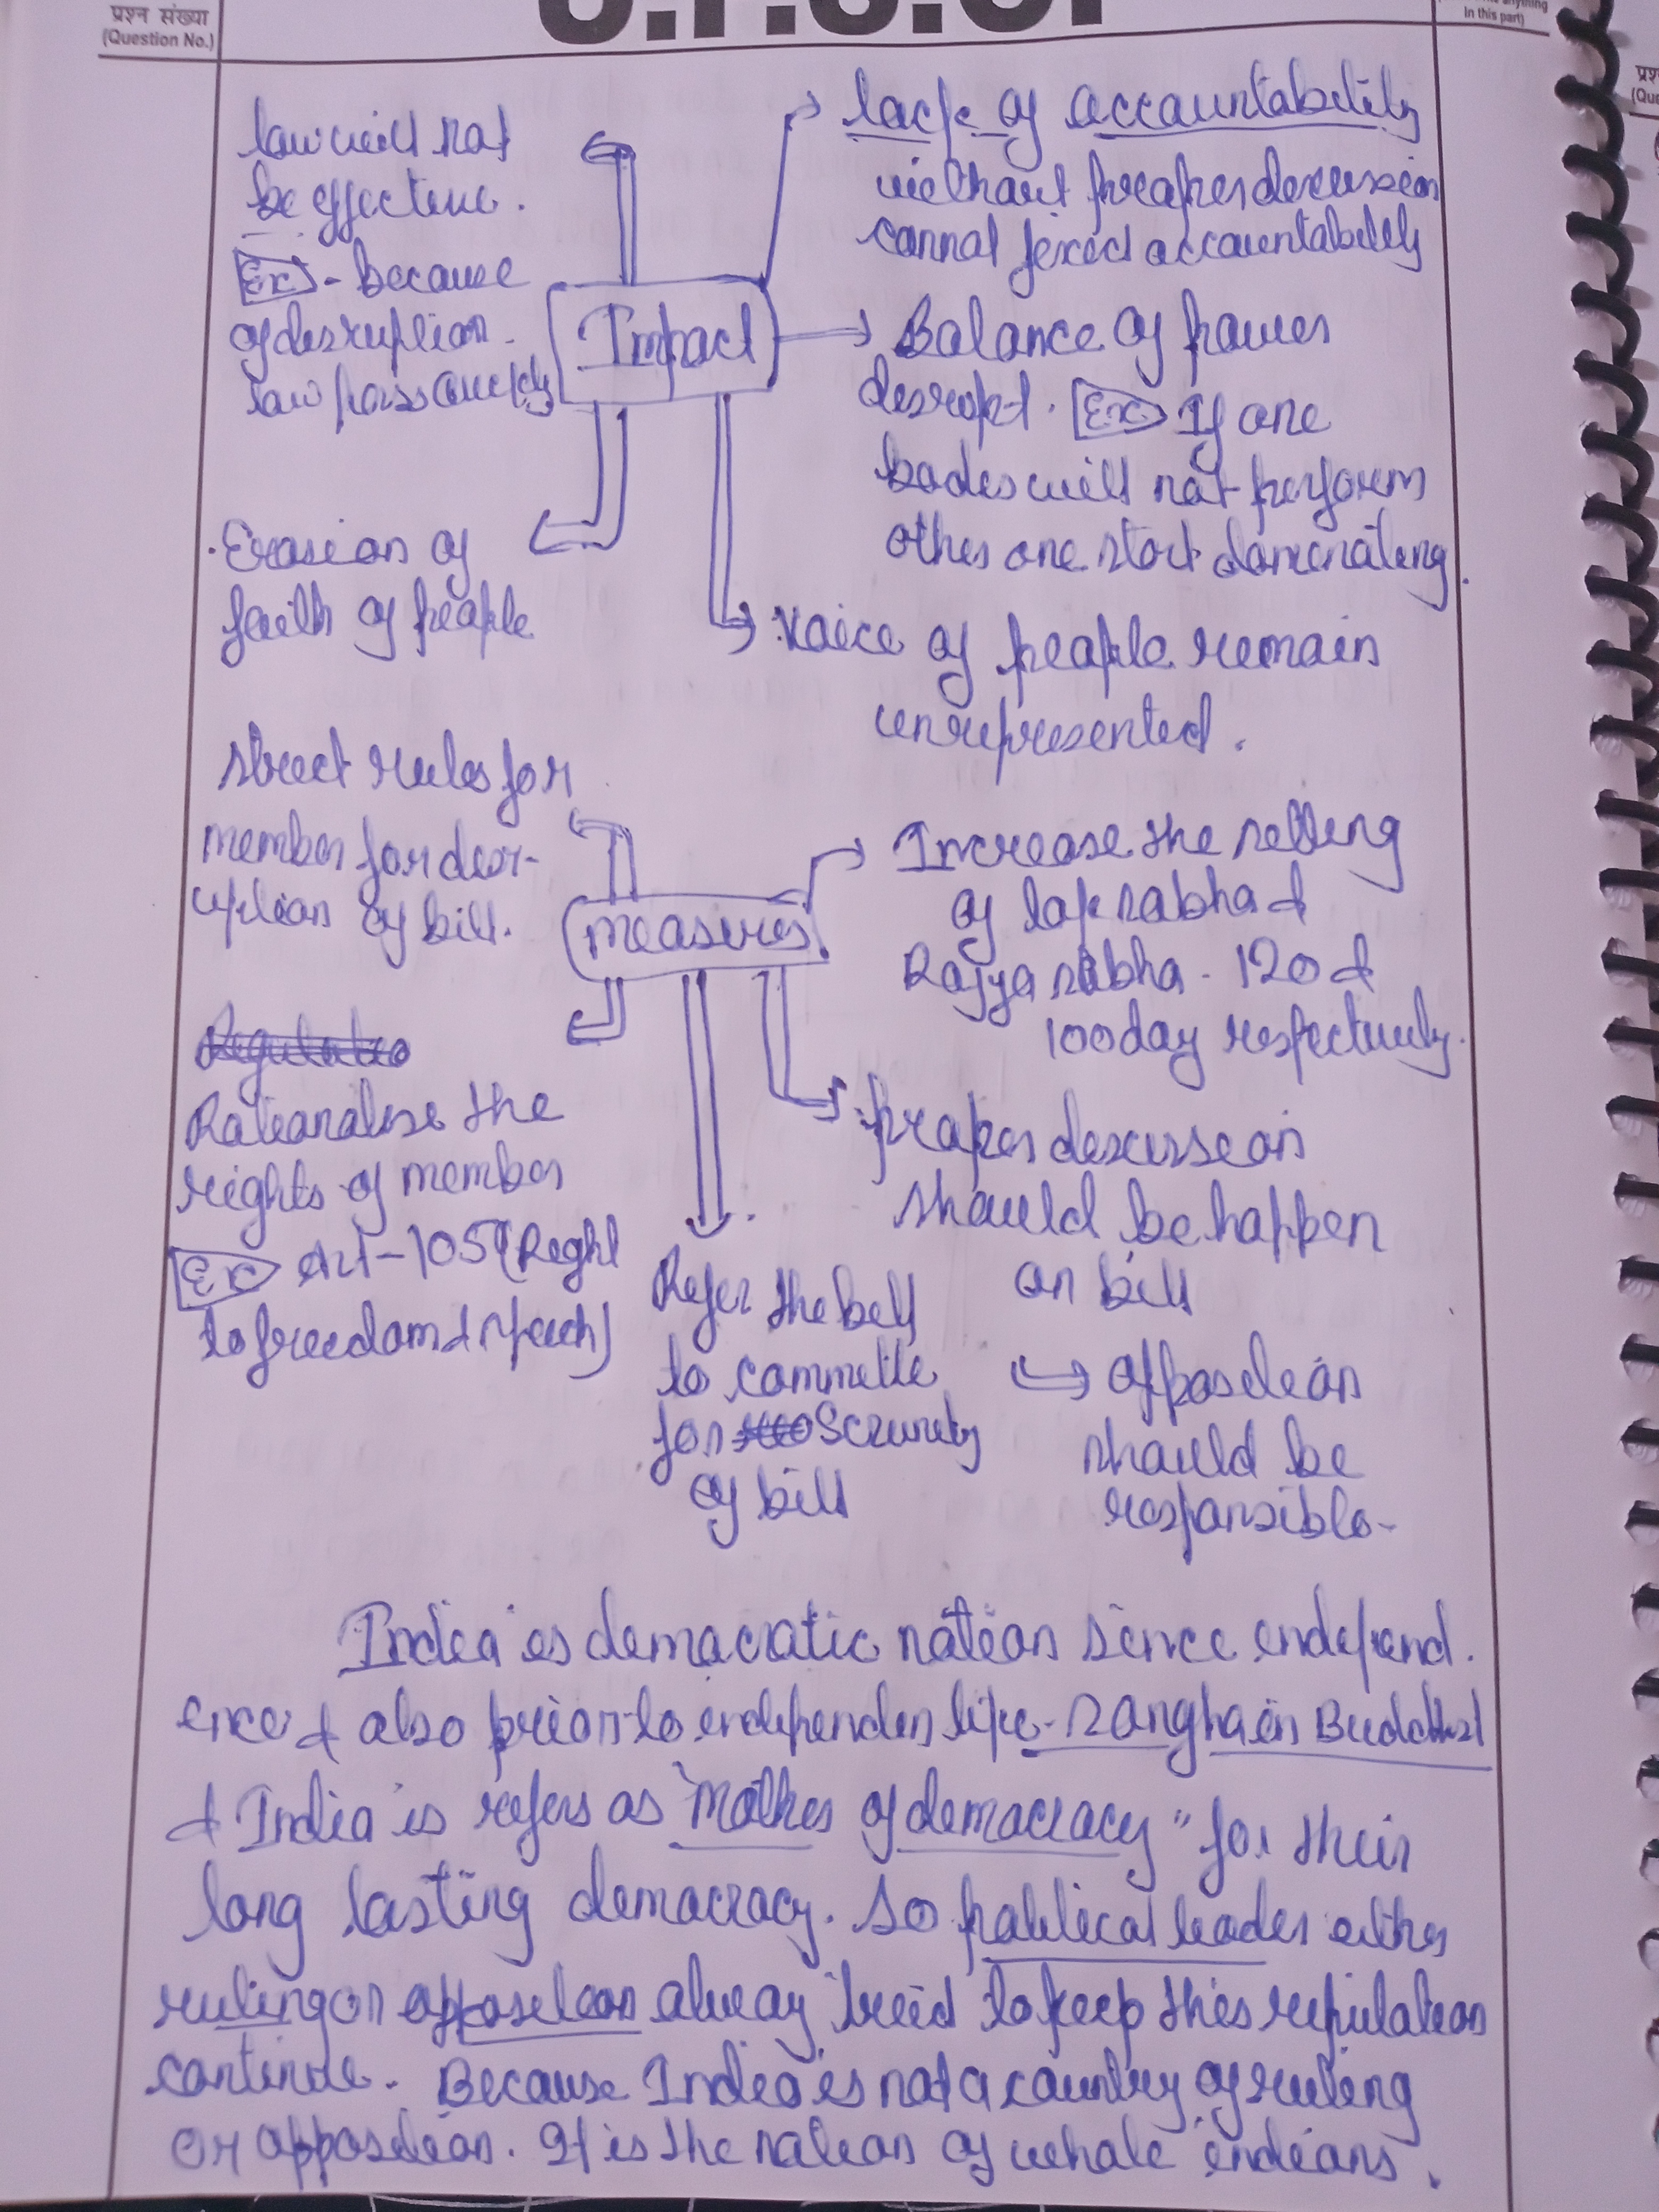 प्रश्न संख्या
(Question No.)
U.P.S.C.
anything
in this part)
प्रश्
(Que
law will not
be effective.
Ex - because
of disruption
law pass quickly
Impact
lack of accountability
without proper discussion
cannot fixed accountability
Balance of power
disrupt. Ex If one
bodies will not perform
other one start dominating.
Voice of people remain
unrepresented.
Erosion of
faith of people
strict rules for
member for disr-
uption of bill.
measures
Increase the setting
of lok sabha &
Rajya sabha - 120 &
100 day respectively.
proper discussion
should be happen
on bill
opposition
should be
responsible-
Refer the bill
to committe
for Scrunity
of bill
Rationalise the
rights of member
Ex Art-105 (Right
to freedom & speech)
India is democratic nation since independ.
ence & also prior to independen like - Sangha in Buddhist
& India is refers as "Mother of democracy" for their
long lasting democracy. So political leader either
ruling or opposition alway tried to keep this reputation
continue. Because India is not a country of ruling
or opposition. It is the nation of whole indians.